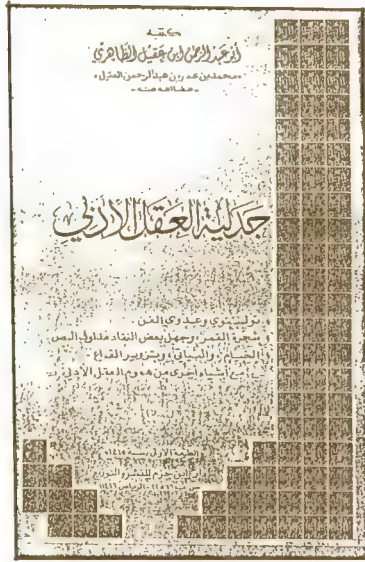 كتبه
أبو عبد الرحمن ابن عقيل الظاهري
«محمد بن عمر بن عبد الرحمن العقيل»
- عفا الله عنه -
جدلية العقل الأدبي
تولستوي وعدوى الفن
شجرة القمر وجهل بعض النقاد مدلول النص
الخيام والبياتي وتزوير القناع
أشياء أخرى من هموم العقل الأدبي
الطبعة الأولى سنة ١٤١٥هـ
حزم للنشر والتوزيع
الرياض